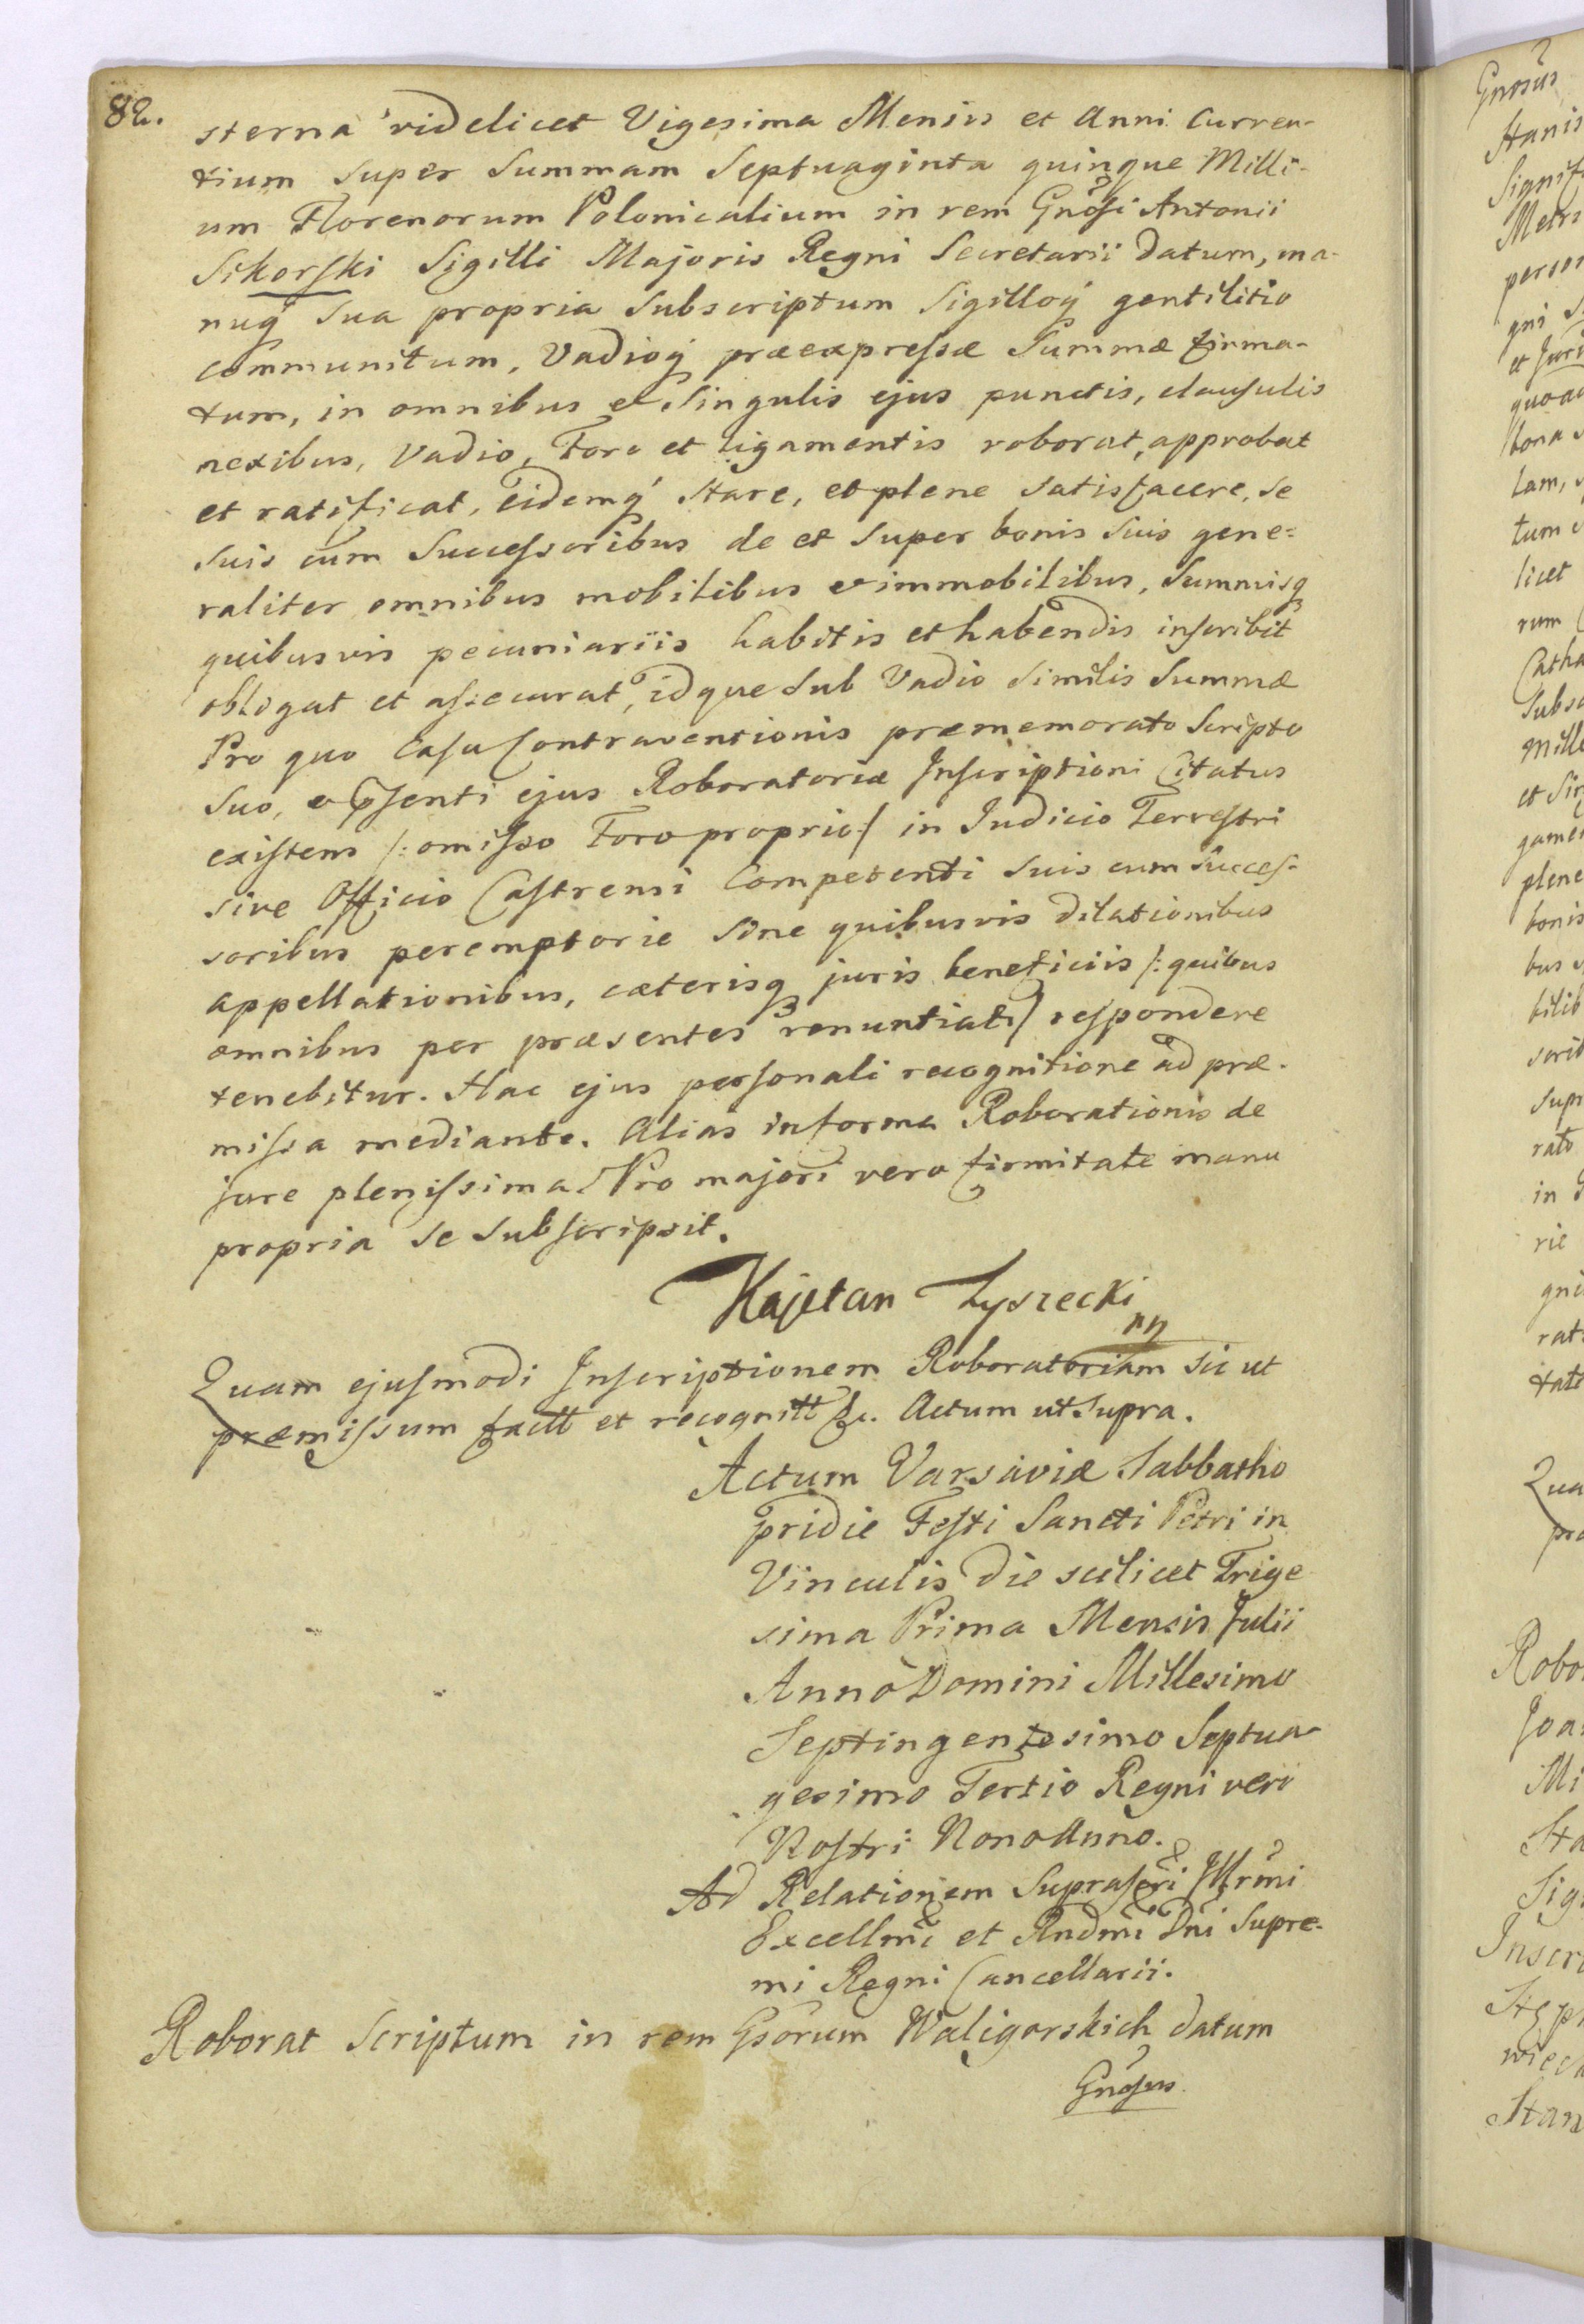 82.
sterna videlicet Vigesima Mensis et Anni Curren-
tium super Summam Septuaginta quinque Milli-
um Florenorum Polonicalium in rem Gnosi Antonii
Sikorski Sigilli Majoris Regni Secretarii datum, ma-
nuq̃ sua propria subscriptum Sigilloq̃ gentilitio
communitum, Vadioq̃ præexpressæ Summæ firma-
tum, in omnibus et singulis ejus punctis, clausulis
nexibus, Vadio, Foro et ligamentis roborat, approbat
et ratificat, Eidemq̃ stare, et plene satisfacere, se
suis cum Successoribus de et super bonis suis gene-
raliter omnibus mobilibus et immobilibus, Summisq̃
quibusvis pecuniariis habitis et habendis inscribit
obligat et assecurat, idque sub Vadio similis Summæ
Pro quo Casu Contraventionis præmemorato Scripto
suo, et pſenti ejus Roboratoriæ Inscriptioni Citatus
existens /: omisso Foro proprio :/ in Judicio Terrestri
sive Officio Castrensi Competenti suis cum succes-
soribus peremptorie sine quibusvis dilationibus
appellationibus, cæterisq̃ juris beneficiis /: quibus
omnibus per præsentes renuntiat :/ respondere
tenebitur. Hac ejus personali recognitione ad præ-
missa mediante. Alias in forma Roborationis de
jure plenissima. Pro majori vero firmitate manu
propria se subscripsit.
Kajetan Łyszecki
mp
Quam ejusmodi Inscriptionem Roboratoriam sic ut
præmissum factt et recognitt &c. Actum ut supra.
Actum Varsaviæ Sabbatho
pridie Festi Sancti Petri in
Vinculis die scilicet Trige
sima Prima Mensis Julii
Anno Domini Millesimo
Septingentesimo Septua-
gesimo Tertio Regni vero
Nostri Nono Anno.
Ad Relationem Suprascri Illrmi
Excellmi et Rndmi Dni Supre-
mi Regni Cancellarii.
Roborat Scriptum in rem Gsorum Waligorskich datum
Gnosus
Gnosus
Stanis
Signif
Metri
person
gni S
et Juri
quoad
bona
tam,
tum
licet
rum
Catha
Subsc
Mille
et Sin
gamen
plene
bonis
bus
bilib
scrib
Supr
rato
in
rie
gni
rat
tate
Qua
Robo
Joa
Mi
Sta
Sig
Inscr
Step
wiec
Stan